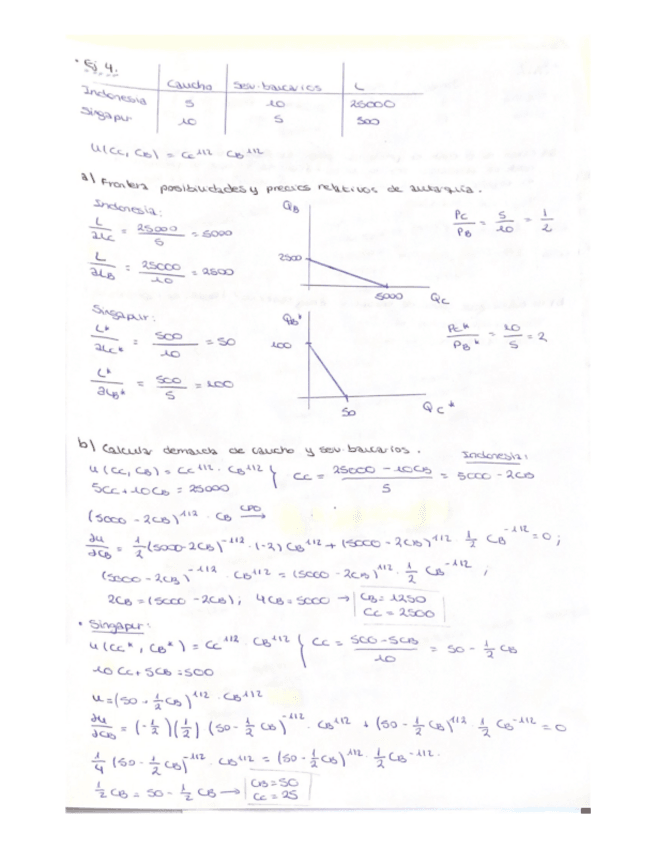 • Ej 4.
Caucho | serv. bancarios | L
Indonesia | 5 | 10 | 25000
Singapur | 10 | 5 | 500
U(Cc, CB) = Cc^1/2 · CB^1/2
a) Frontera posibilidades y precios relativos de autarquía.
Indonesia:
L/aLc = 25000/5 = 5000
L/aLB = 25000/10 = 2500
QB
2500
5000 Qc
Pc/PB = 5/10 = 1/2
Singapur:
L*/aLc* = 500/10 = 50
L*/aLB* = 500/5 = 100
QB*
100
50 Qc*
Pc*/PB* = 10/5 = 2
b) Calcular demanda de caucho y serv. bancarios.
Indonesia:
u(Cc, CB) = Cc^1/2 · CB^1/2 } Cc = (25000 - 10CB)/5 = 5000 - 2CB
5Cc + 10CB = 25000
(5000 - 2CB)^1/2 · CB CPO →
∂u/∂CB = 1/2 (5000-2CB)^-1/2 · (-2) CB^1/2 + (5000 - 2CB)^1/2 · 1/2 CB^-1/2 = 0;
(5000 - 2CB)^-1/2 · CB^1/2 = (5000 - 2CB)^1/2 · 1/2 CB^-1/2 ;
2CB = (5000 - 2CB); 4CB = 5000 → CB = 1250
Cc = 2500
• Singapur:
u(Cc*, CB*) = Cc^1/2 · CB^1/2 } Cc = (500 - 5CB)/10 = 50 - 1/2 CB
10Cc + 5CB = 500
u = (50 - 1/2 CB)^1/2 · CB^1/2
∂u/∂CB = (-1/2)(1/2) (50 - 1/2 CB)^-1/2 · CB^1/2 + (50 - 1/2 CB)^1/2 · 1/2 CB^-1/2 = 0
1/4 (50 - 1/2 CB)^-1/2 · CB^1/2 = (50 - 1/2 CB)^1/2 · 1/2 CB^-1/2.
1/2 CB = 50 - 1/2 CB → CB = 50
Cc = 25